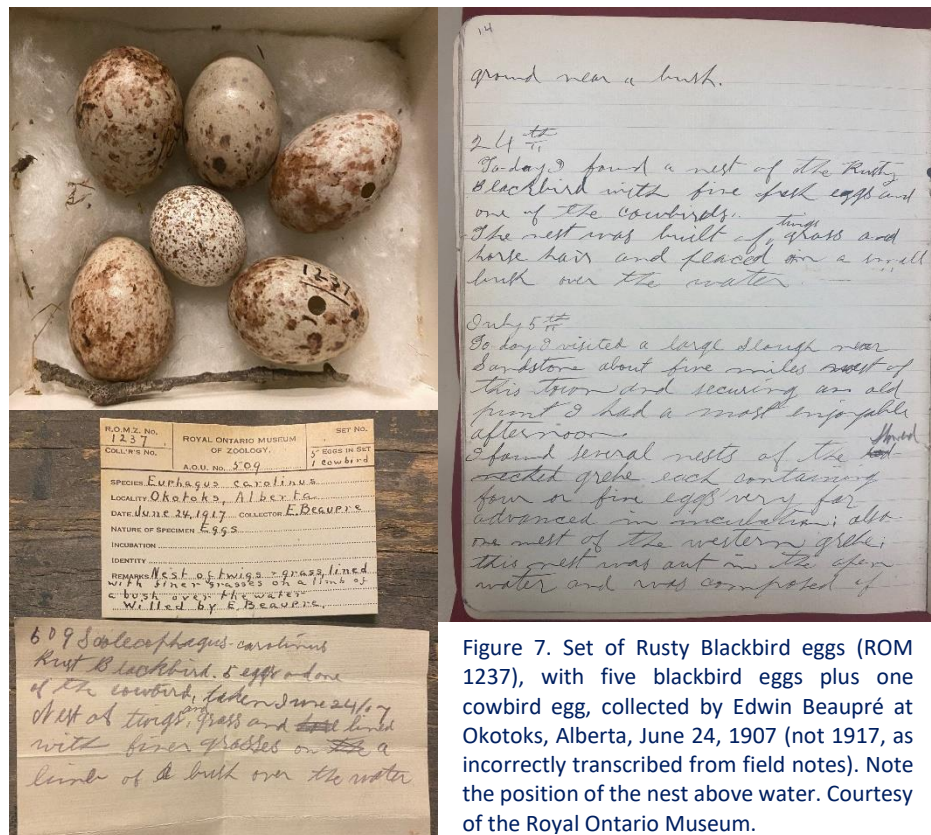 1237
R.O.M.Z. No.
1237
COLL'R'S No.
ROYAL ONTARIO MUSEUM
OF ZOOLOGY.
A.O.U. No. 509
SET No.
5 EGGS IN SET
1 cowbird
SPECIES Euphagus carolinus
LOCALITY Okotoks, Alberta
DATE June 24, 1917 COLLECTOR E. Beaupre
NATURE OF SPECIMEN Eggs
INCUBATION
IDENTITY
REMARKS Nest of twigs & grass, lined
with finer grasses on a limb of
a bush over the water
Willed by E. Beaupre.
609 Scolecophagus carolinus
Rust Blackbird. 5 eggs and one
of the cowbird, taken June 24/07
Nest of twigs, grass and lined
with finer grasses on the a
limb of a bush over the water
14
ground near a bush.
24th
To-day I found a nest of the Rusty
Blackbird with five fresh eggs and
one of the cowbirds.
The nest was built of twigs grass and
horse hair and placed in a small
bush over the water
July 5th
To day I visited a large slough near
Sandstone about five miles west of
this town and securing an old
punt I had a most enjoyable
afternoon
I found several nests of the horned
necked grebe each containing
four or five eggs very far
advanced in incubation; also
one nest of the western grebe;
this nest was out in the open
water and was composed of
Figure 7. Set of Rusty Blackbird eggs (ROM
1237), with five blackbird eggs plus one
cowbird egg, collected by Edwin Beaupré at
Okotoks, Alberta, June 24, 1907 (not 1917, as
incorrectly transcribed from field notes). Note
the position of the nest above water. Courtesy
of the Royal Ontario Museum.